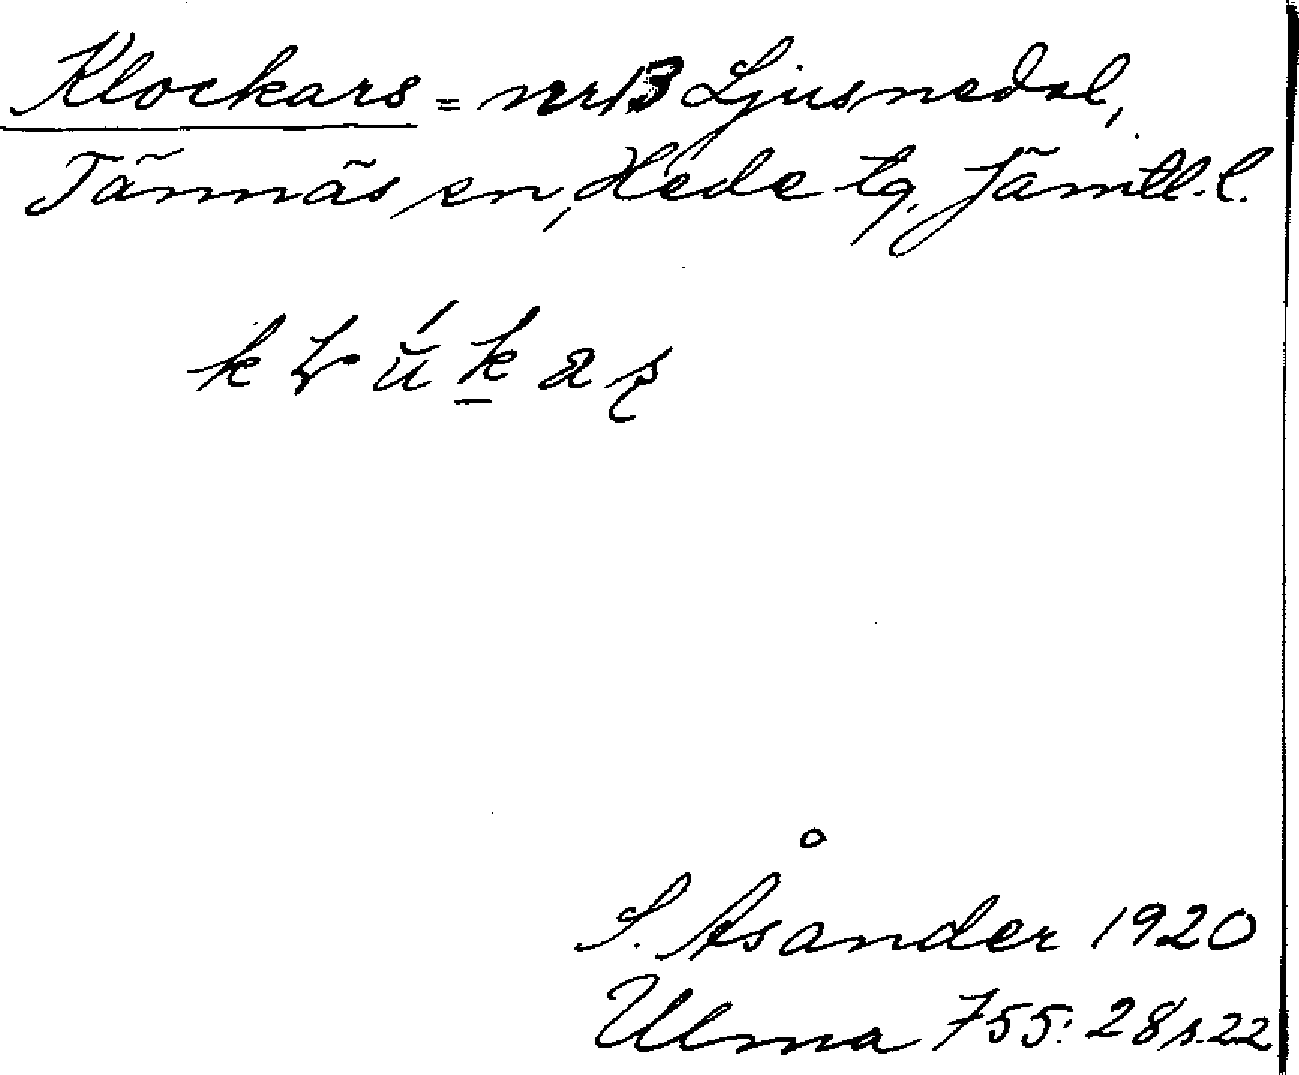 Klockars = nr 13 Ljusnedal,
Tännäs sn, Hede tg. Jämtl. l.
S. Åsander 1920
Ulma 755: 28 s. 22